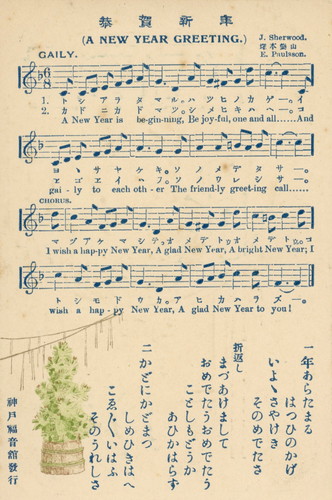 恭賀新年
(A NEW YEAR GREETING.)
J. Sherwood.
E. Paulsson.
GAILY.
1. トシアラタマル。ハツヒノカゲ一。イ
2. カドニカドマツ。シメヒキハヘ一。コ
A New Year is be-gin-ning, Be joy-ful, one and all......And
ヨ丶サヤケキ。ソノメデタサ一。
ヱゴエイハフ。ソノウレシサ一。
gai-ly to each oth-er The friend-ly greet-ing call......
CHORUS.
マヅアケマシテオメデトオメデトウ。コ
I wish a hap-py New Year, A glad New Year, A bright New Year; I
トシモドウカ。アヒカハラズ一。
wish a hap-py New Year, A glad New Year to you!
一年あらたまる
はつひのかげ
いよゝさやけき
そのめでたさ
折返し
まづあけまして
おめでたうおめでたう
ことしもどうか
あひかはらず
二かどにかどまつ
しめひきはへ
こゑ〴〵いはふ
そのうれしさ
神戸福音館發行